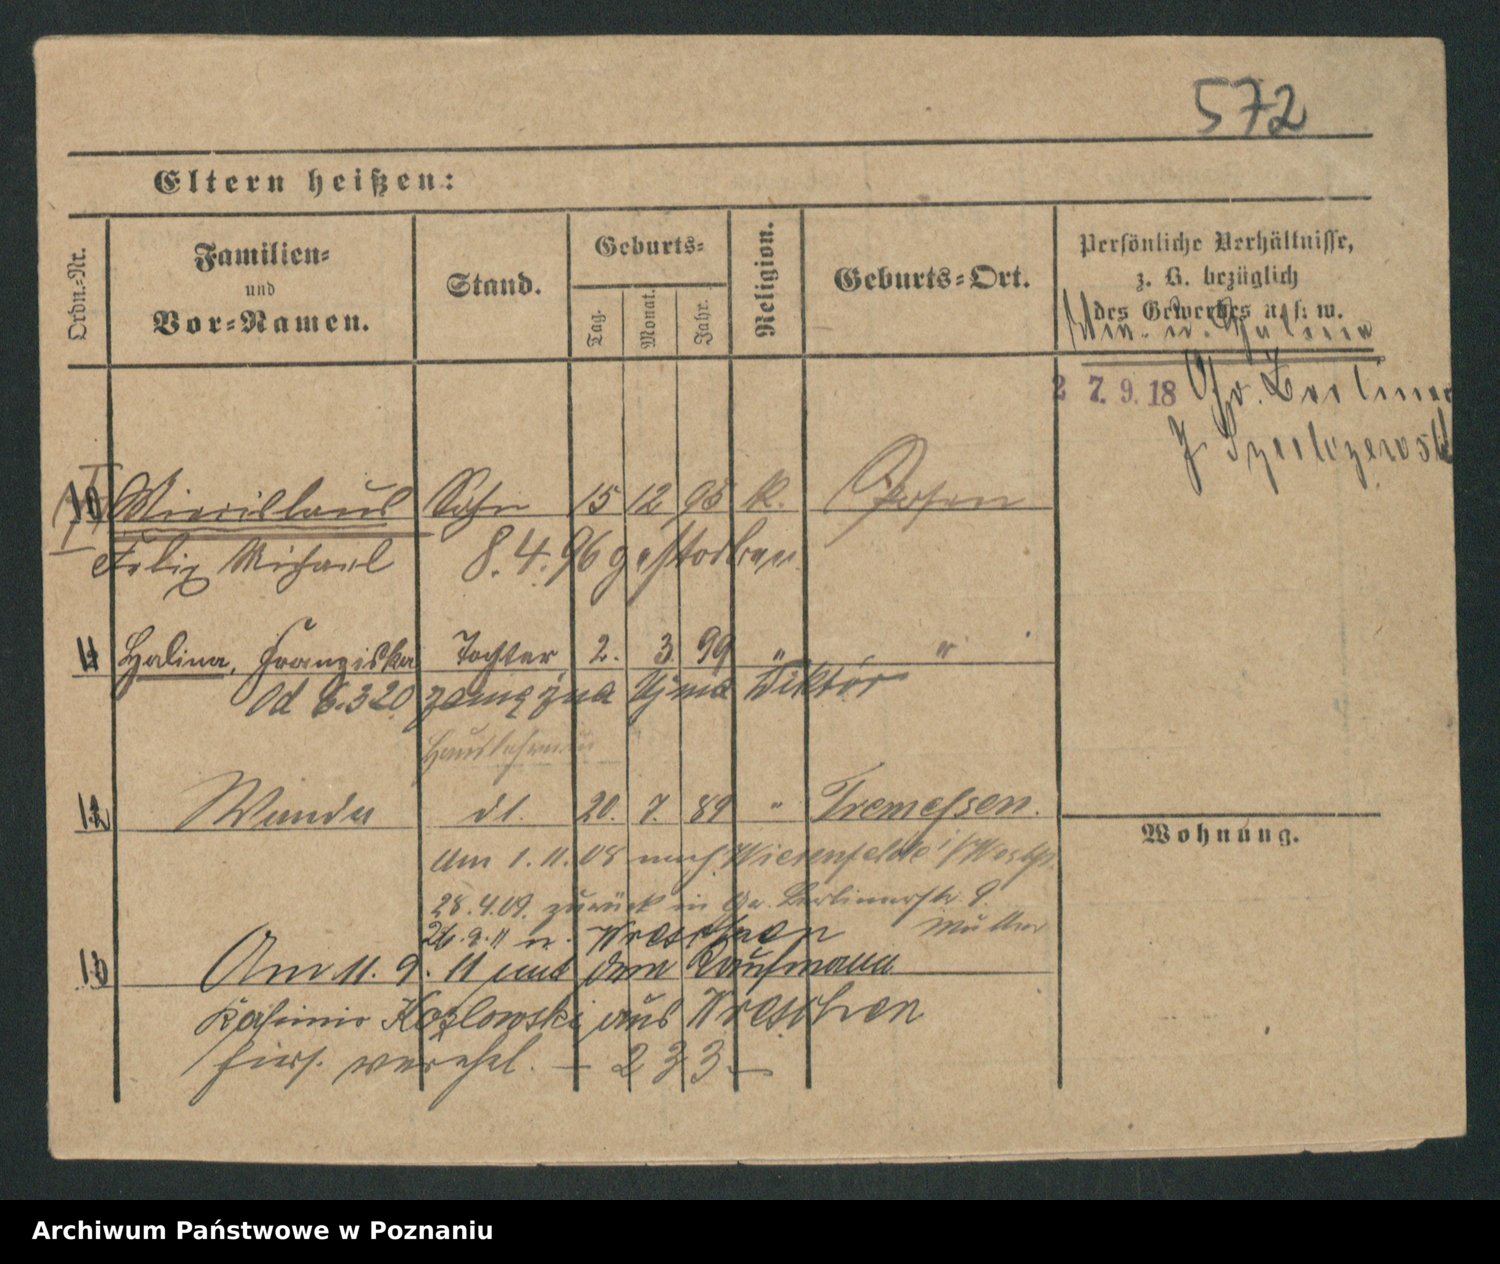 572
Eltern heißen:
Ordn.-Nr.
Familien-
und
Vor-Namen.
Stand.
Geburts-
Tag.
Monat.
Jahr.
Religion.
Geburts-Ort.
Persönliche Verhältnisse,
z. B. bezüglich
des Gewerbes u. s. w.
27.9.18 Gr. Berliner
10 Miecislaus Sohn 15 12 95 K. Posen
Felix Michael 8.4.96 gestorben
11 Halina, Franziska Tochter 2. 3. 99 " "
Od 6.3 20 zamężna Wiktor
Hauslehrerin
12 Wanda dt. 20. 7. 89 " Tremessen.
Am 1. 11. 08 nach Wiesenfelde /Westpr.
28.4.09. zurück in Gr. Berlinerstr. 9.
Mutter
26.9.11 n. Wreschen
13 Am 11. 9. 11 mit dem Kaufmann
Kasimir Kozlowski aus Wreschen
hiers. verehel. - 233 -
Wohnung.
Archiwum Państwowe w Poznaniu